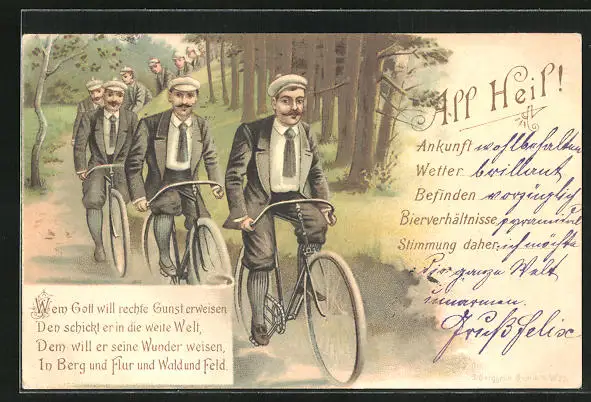 All Heil!
Ankunft wohlbehalten
Wetter brillant
Befinden vorzüglich
Bierverhältnisse
Stimmung daher: ich möchte
die ganze Welt
umarmen.
Gruß Felix
Wem Gott will rechte Gunst erweisen
Den schickt er in die weite Welt,
Dem will er seine Wunder weisen,
In Berg und Flur und Wald und Feld.